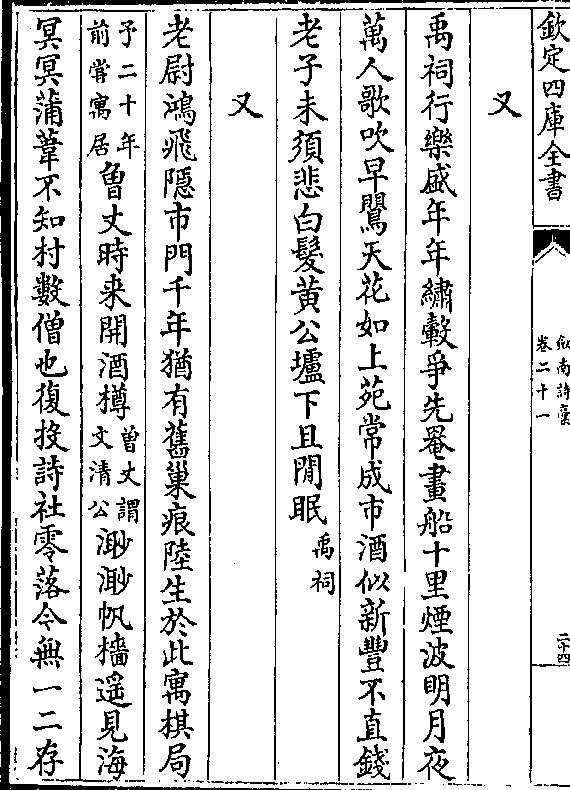 欽定四庫全書
劍南詩稾
卷二十一
二十四
又
禹祠行樂盛年年繡轂爭先罨畫船十里煙波明月夜
萬人歌吹早鶯天花如上苑常成市酒似新豐不直錢
老子未須悲白髮黃公壚下且閒眠禹祠
又
老尉鴻飛隱市門千年猶有舊巢痕陸生於此寓棋局
予二十年前嘗寓居曾丈時来開酒樽曾丈謂文清公渺渺帆檣遥見海
冥冥蒲葦不知村數僧也復投詩社零落令無一二存